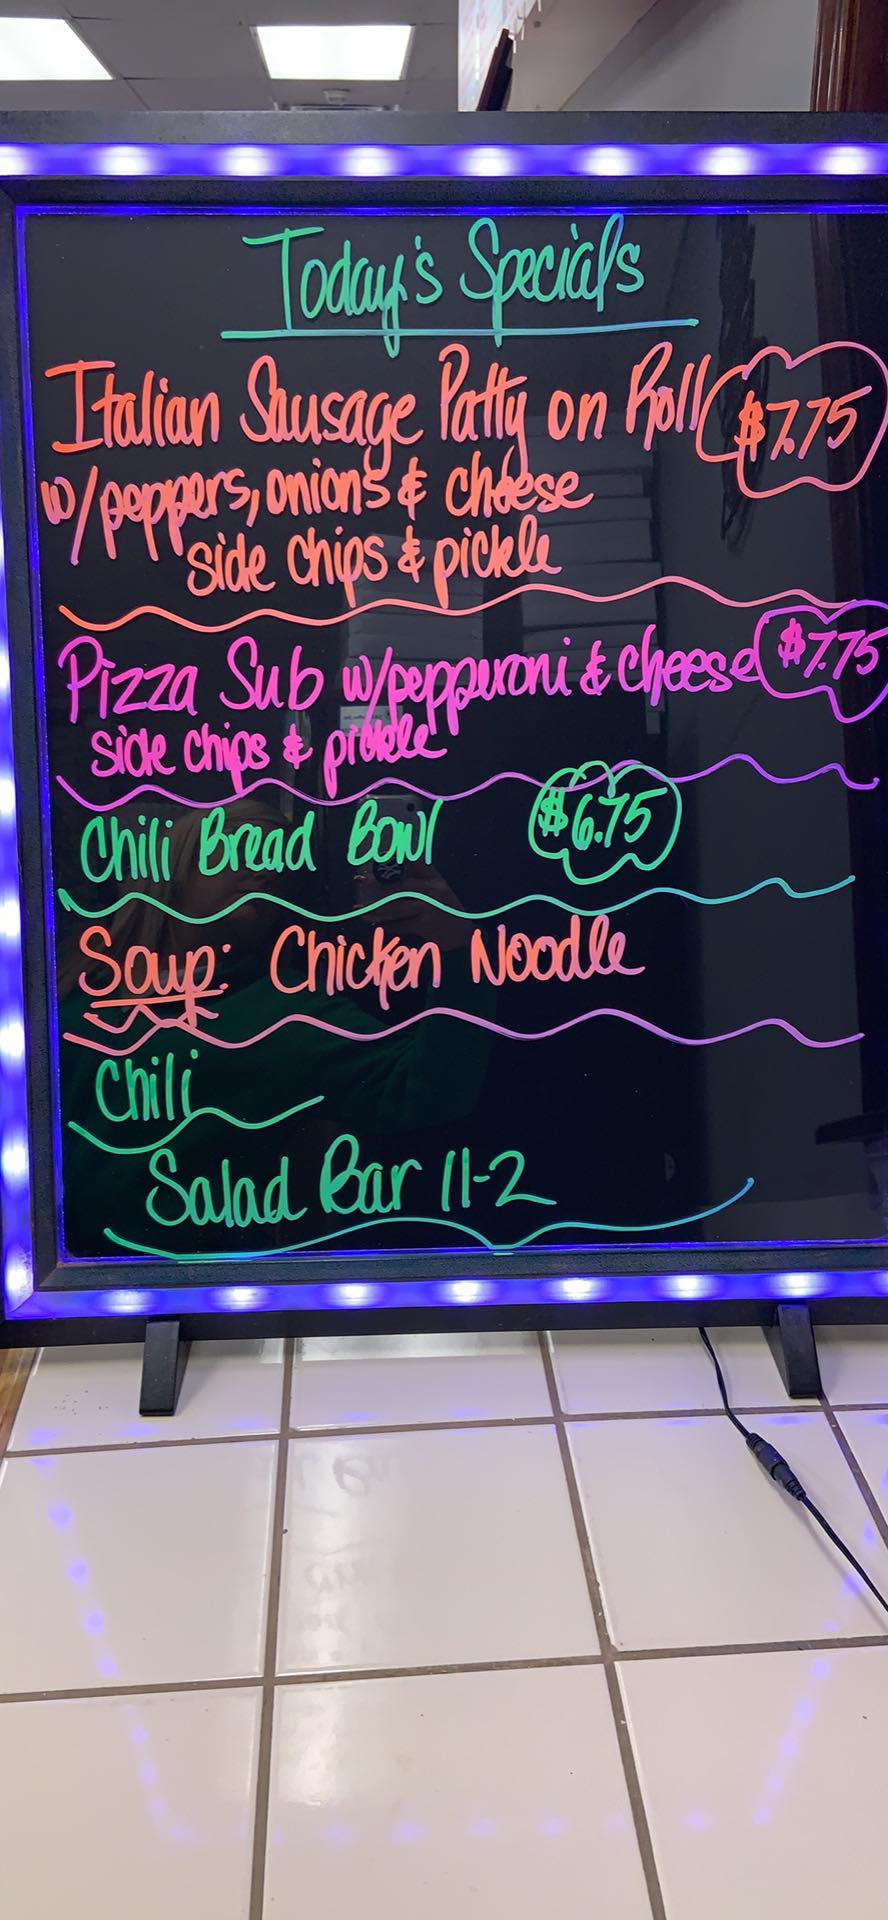 Today's Specials
Italian Sausage Patty on Roll $7.75
w/peppers, onions & cheese
side chips & pickle
Pizza Sub w/pepperoni & cheese $7.75
side chips & pickle
Chili Bread Bowl $6.75
Soup: Chicken Noodle
Chili
Salad Bar 11-2